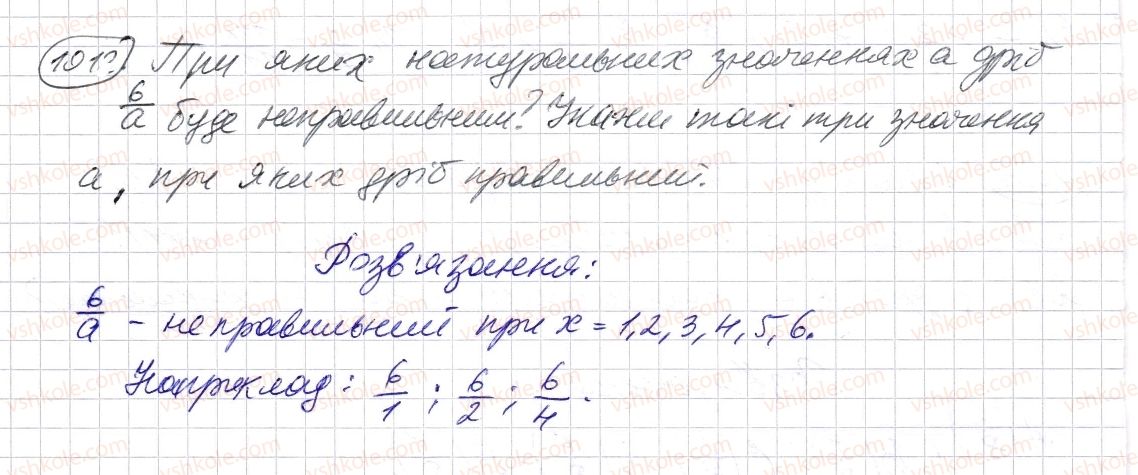 101? При яких натуральних значеннях а дріб
6/а буде неправильним? Укажи такі три значення
а, при яких дріб правильний.
Розв'язання:
6/а - неправильний при х = 1, 2, 3, 4, 5, 6.
Наприклад: 6/1 ; 6/2 ; 6/4 .